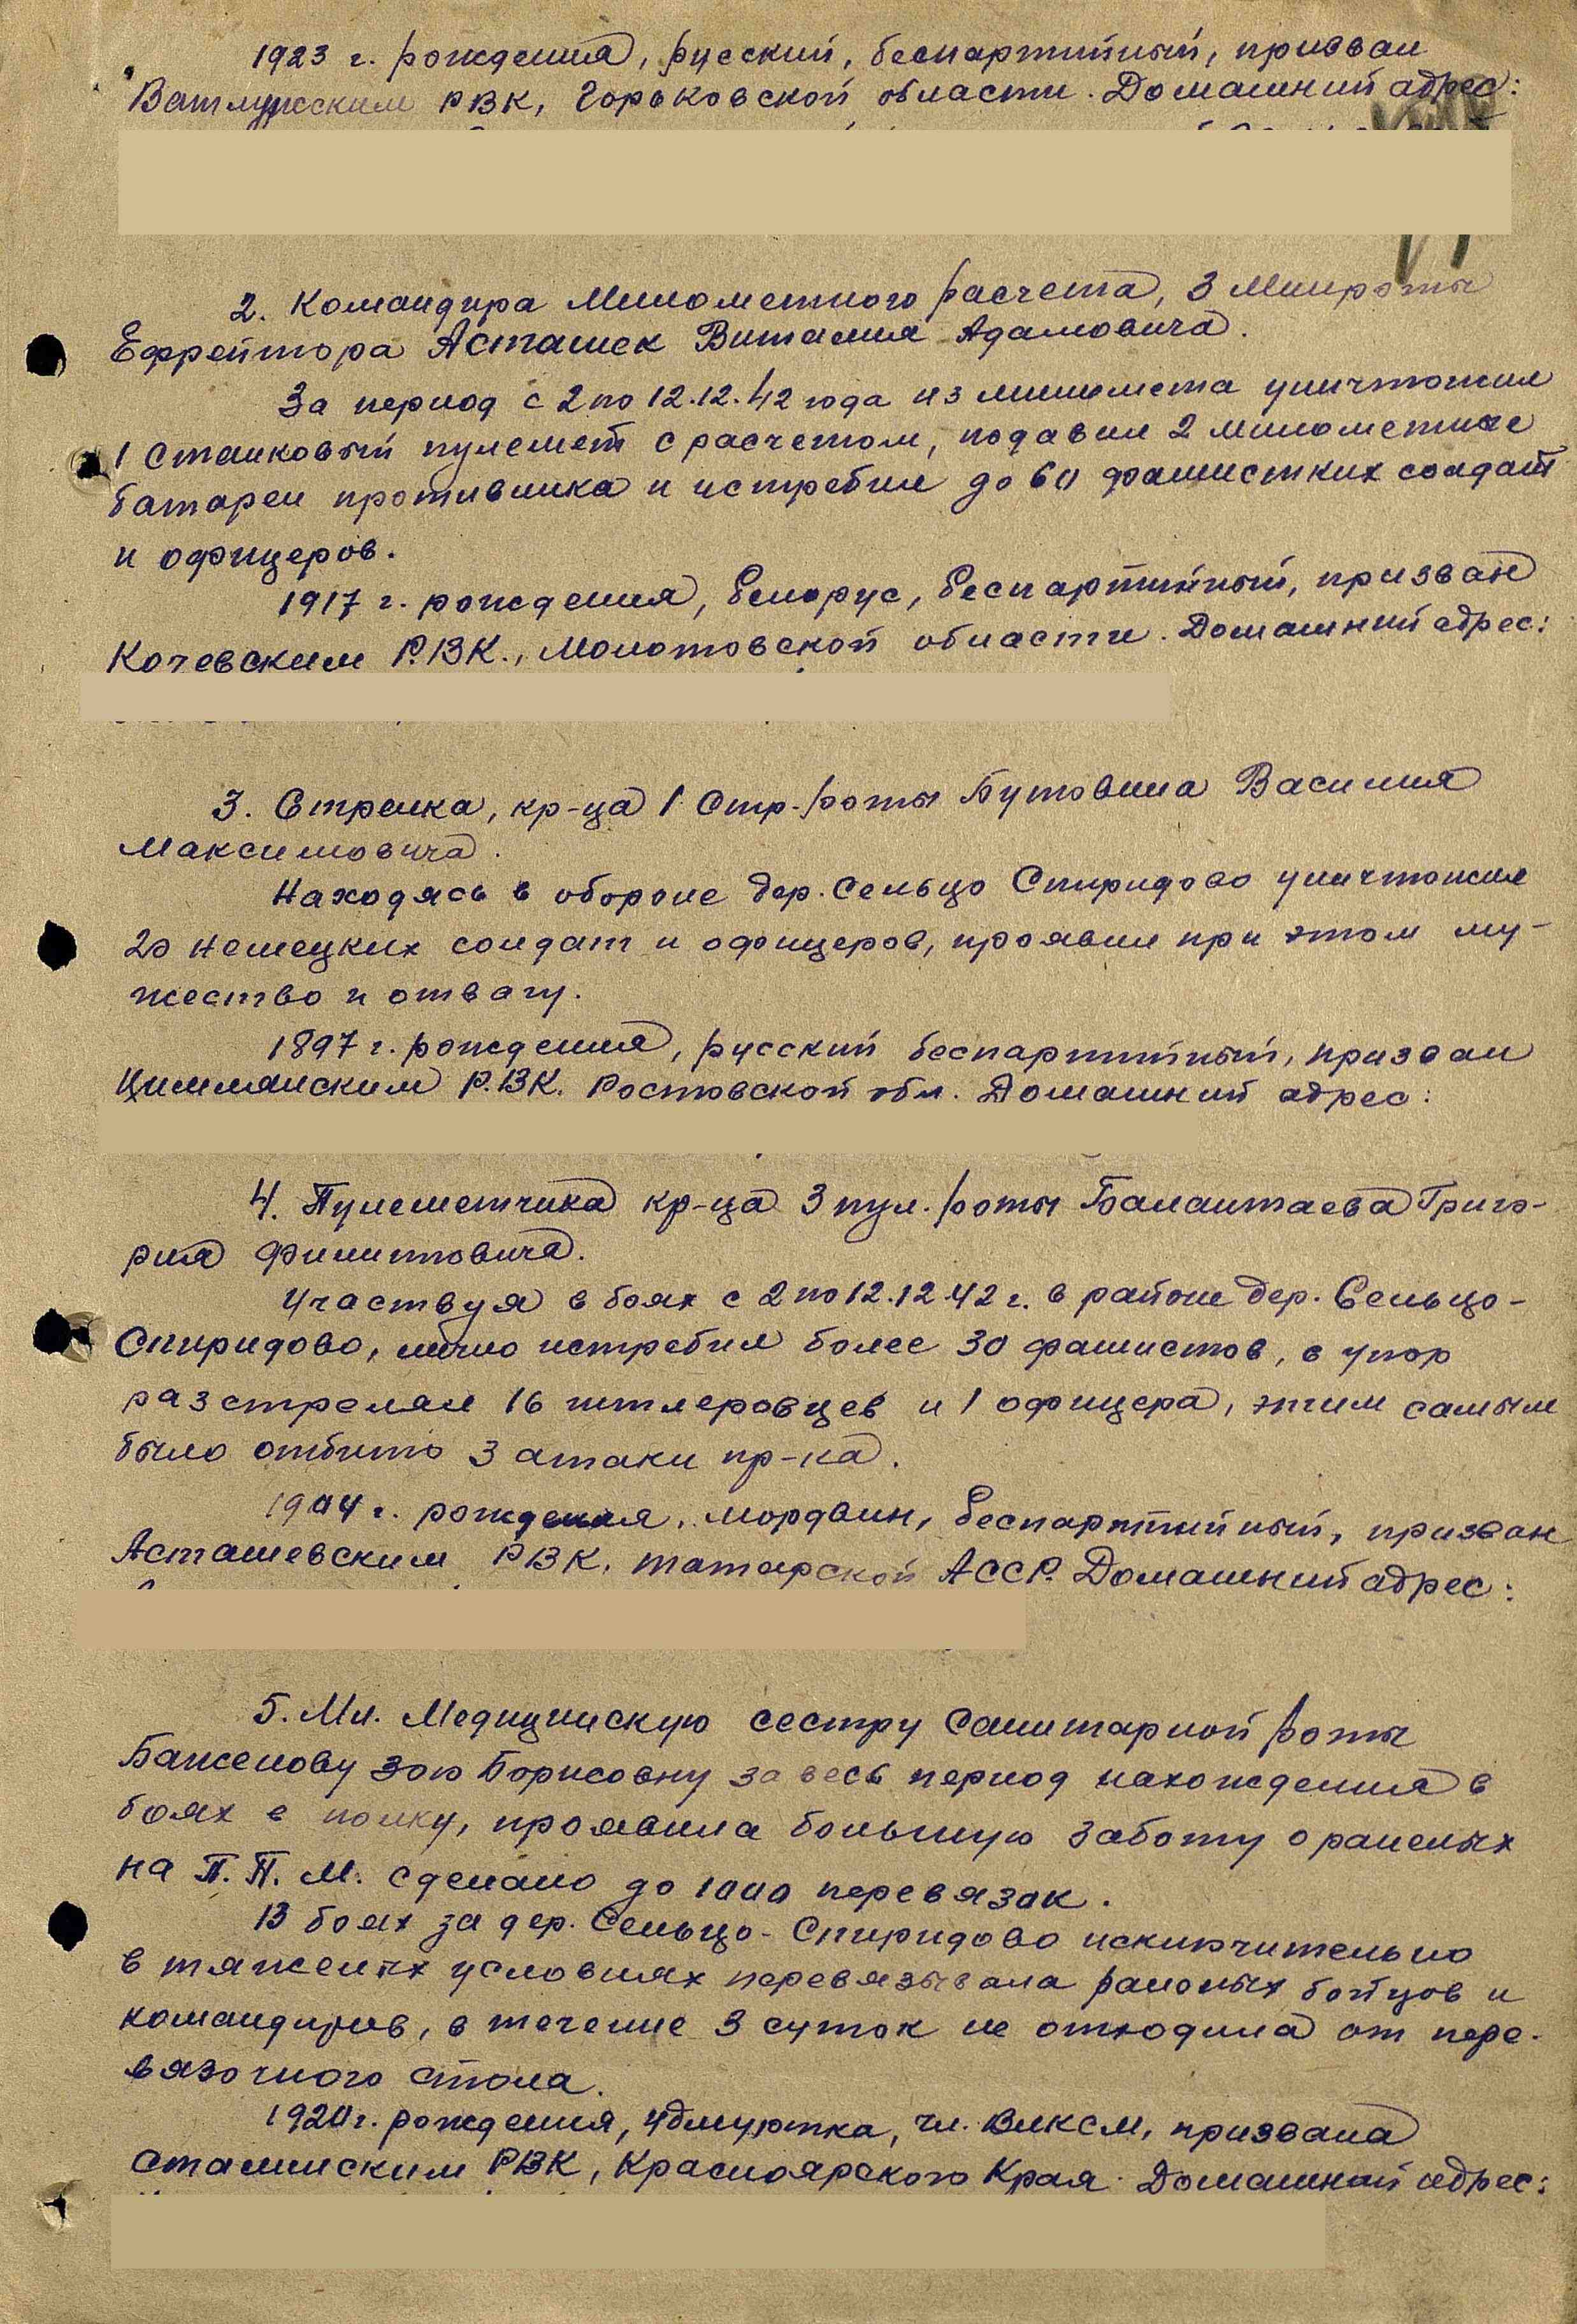 1923 г. рождения, русский, беспартийный, призван
Ватлужским РВК, Горьковской области. Домашний адрес:
2. Командира Минометного расчета, 3 Минроты
Ефрейтора Асташек Виталия Адамовича.
За период с 2 по 12.12.42 года из миномета уничтожил
1 станковый пулемет с расчетом, подавил 2 минометные
батареи противника и истребил до 60 фашистких солдат
и офицеров.
1917 г. рождения, белорус, беспартийный, призван
Кочевским Р.ВК., Молотовской области. Домашний адрес:
3. Стрелка, кр-ца 1 Стр. роты Бутовила Василия
Максимовича.
Находясь в обороне дер. Сельцо Спиридово уничтожил
20 немецких солдат и офицеров, проявил при этом му-
жество и отвагу.
1897 г. рождения, русский беспартийный, призван
Цимлянским Р.ВК. Ростовской обл. Домашний адрес:
4. Пулеметчика кр-ца 3 пул. роты Балантаева Григо-
рия Филипповича.
Участвуя в боях с 2 по 12.12.42 г. в районе дер. Сельцо-
Спиридово, лично истребил более 30 фашистов, в упор
разстрелял 16 гитлеровцев и 1 офицера, этим самым
было отбито 3 атаки пр-ка.
1904 г. рождения, мордвин, беспартийный, призван
Асташевским РВК, татарской АССР. Домашний адрес:
5. Мл. Медицинскую сестру Санитарной роты
Баженову Зою Борисовну за весь период нахождения в
боях в полку, проявила большую заботу о раненых
на П.П.М. сделано до 1000 перевязок.
В боях за дер. Сельцо-Спиридово исключительно
в тяжелых условиях перевязывала раненых бойцов и
командиров, в течение 3 суток не отходила от пере-
вязочного стола.
1920 г. рождения, удмуртка, чл. ВЛКСМ, призвана
Сталинским РВК, Красноярского Края. Домашний адрес: